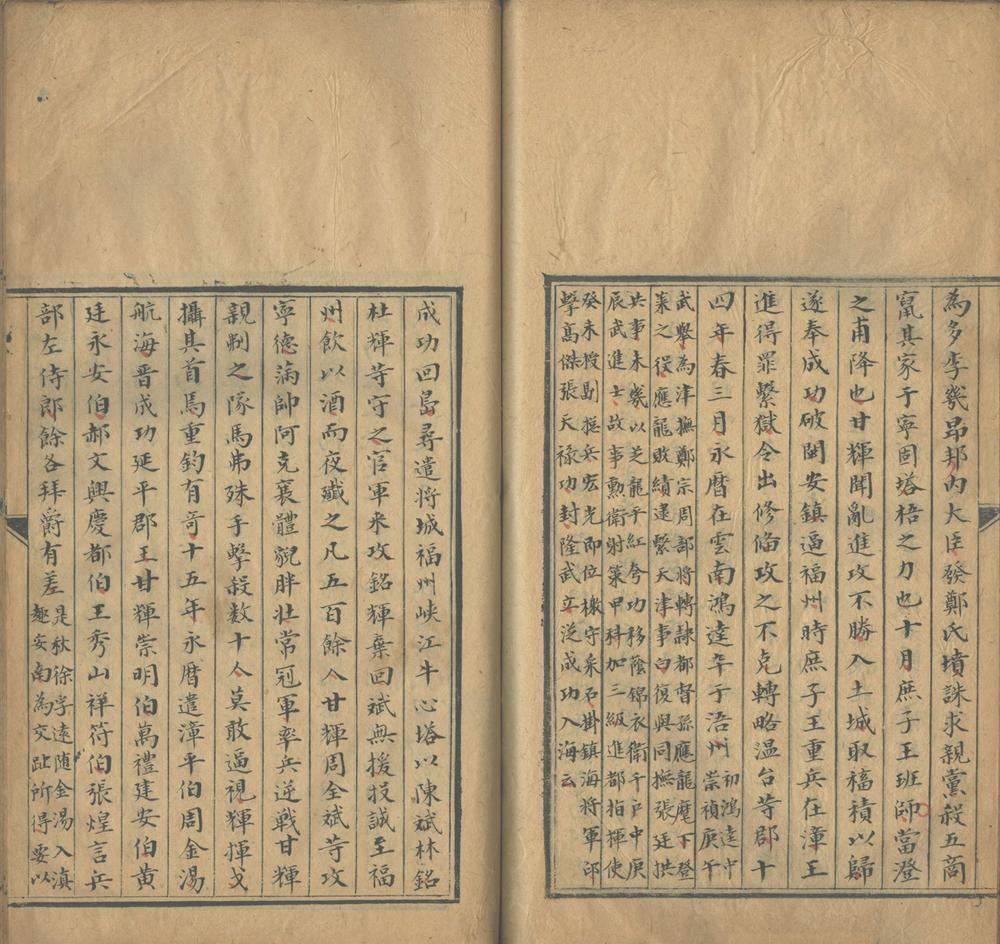 為多李幾昂邦內大臣發鄭氏墳誅求親黨殺五商
竄其家于寧固塔梧之力也十月庶子王班師當澄
之甫降也甘輝聞亂進攻不勝入土城取福積以歸
遂奉成功破閩安鎮逼福州時庶子王重兵在漳王
進得罪繫獄令出修俻攻之不克轉略溫台等郡十
四年春三月永曆在雲南鴻逵卒于浯州
初鴻逵中
崇禎庚午
武舉為津撫鄭宗周部將轉隷都督孫應龍麾下登
萊之役應龍敗績逮繫天津事白復與同撫張廷拱
共事未幾以芝龍平紅夸功移蔭錦衣衛千戶中庚
辰武進士故事勳衛射策甲科加三級進都指揮使
癸未授副摠兵宏光即位檄守采石掛鎮海將軍印
擊高傑張天禄功封隆武立泛成功入海云
成功回島尋遣將城福州峽江牛心塔以陳斌林銘
杜輝等守之官軍來攻銘輝棄回斌無援投誠至福
州飲以酒而夜殲之凡五百餘人甘輝周全斌等攻
寧德滿帥阿克襄體貌胖壯常冠軍率兵逆戰甘輝
親制之隊馬弗殊手擊殺数十人莫敢逼視輝揮戈
攝其首馬重鈞有竒十五年永曆遣漳平伯周金湯
航海晋成功延平郡王甘輝崇明伯萬禮建安伯黃
廷永安伯郝文興慶都伯王秀山祥符伯張煌言兵
部左侍郎餘各拜爵有差
是秋徐孚遠随金湯入滇
趣安南為交趾所得要以